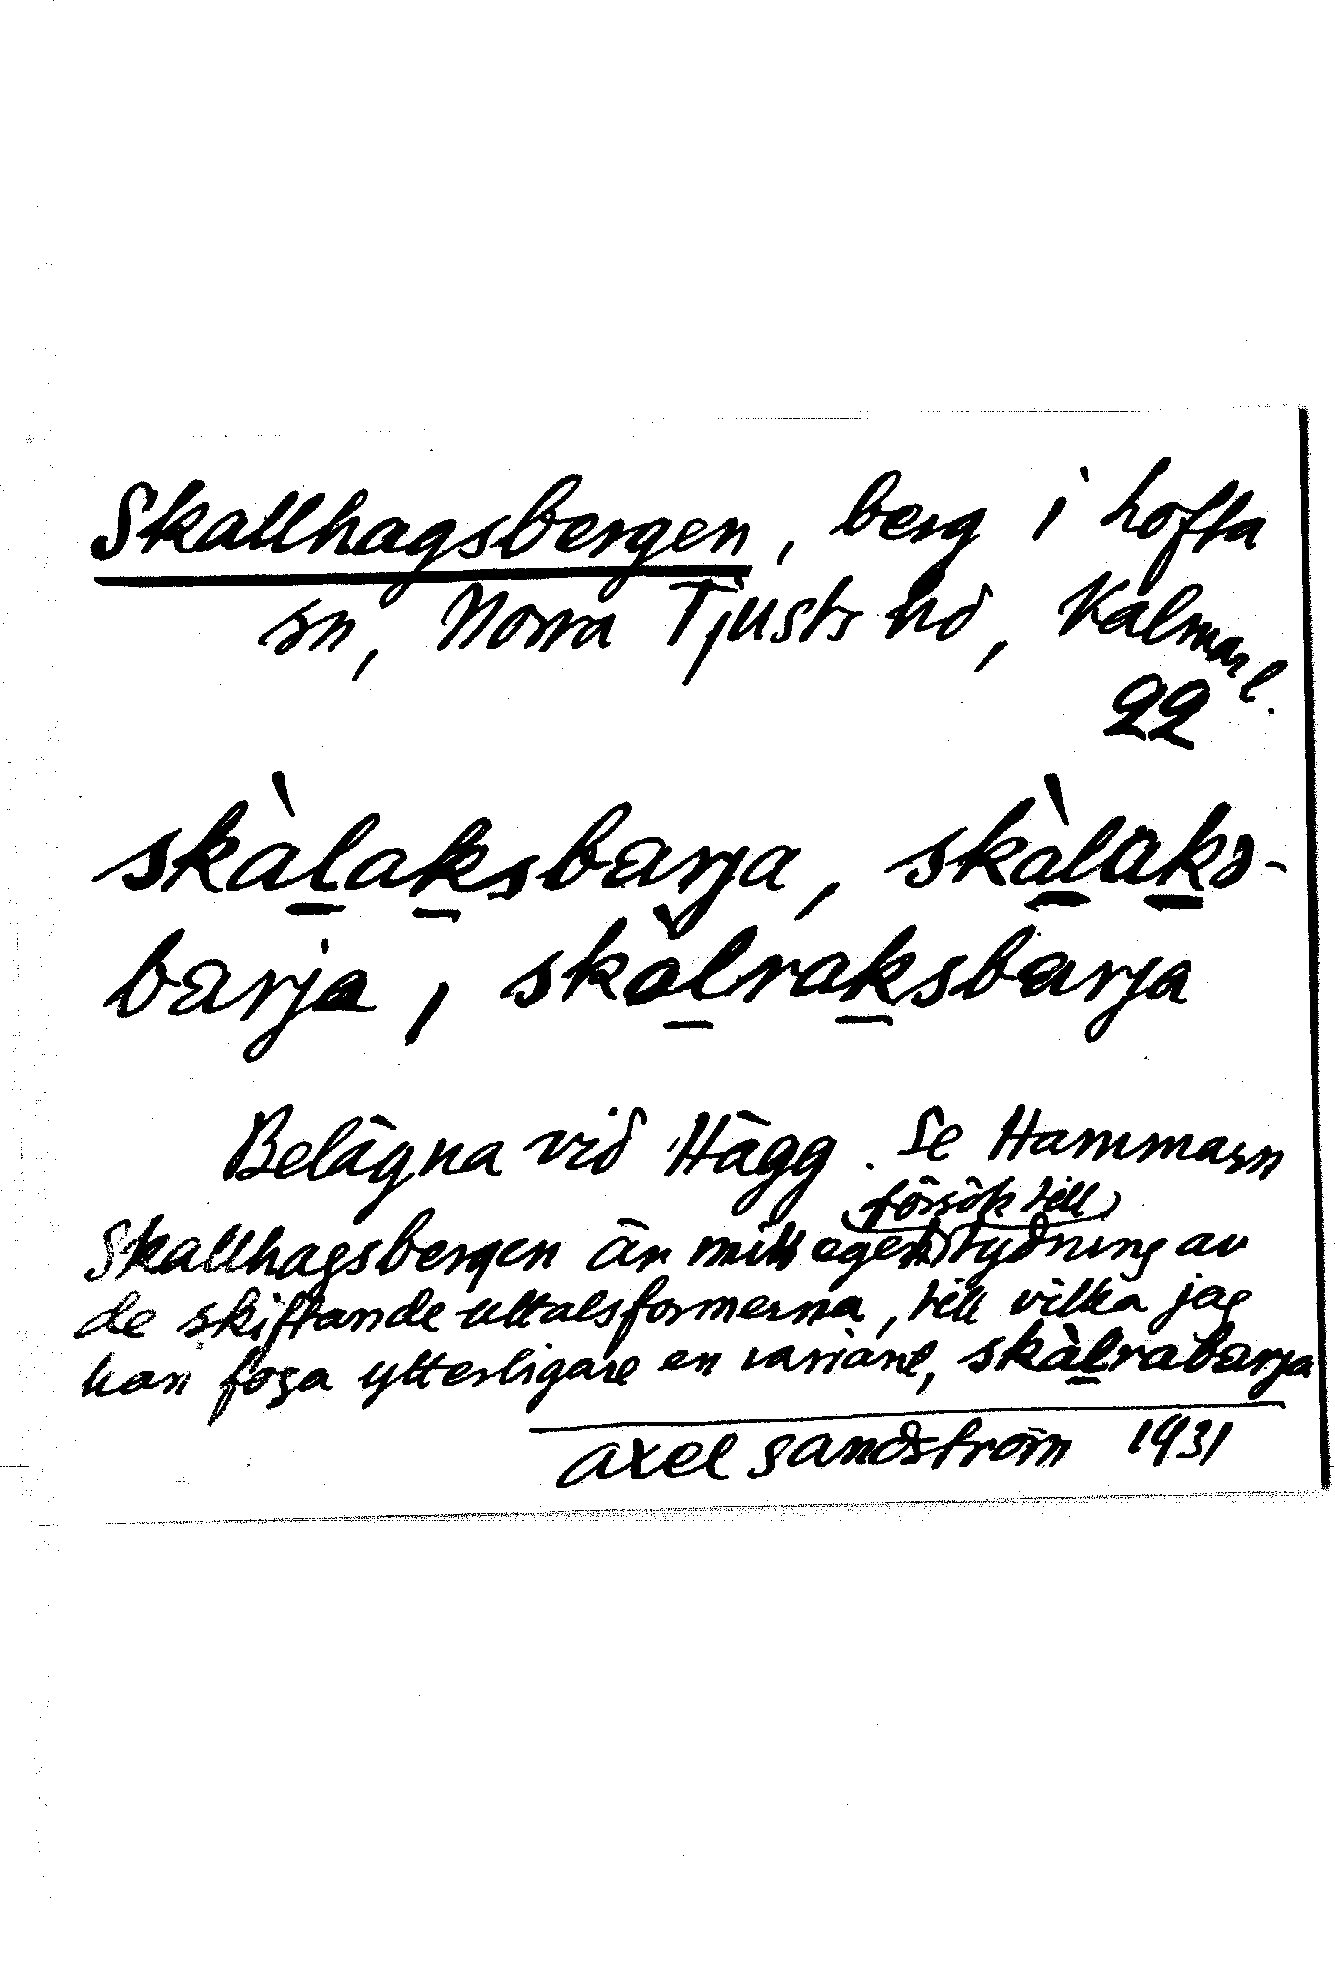 Skallhagsbergen, berg i Lofta
sn, Norra Tjusts hd, Kalmar l.
22
skàlaksbarja, skàlaks-
barja, skàlraksbarja
Belägna vid Hägg. Se Hammarn
försök till
Skallhagsbergen är mitt eget tydning av
de skiftande uttalsformerna, till vilka jag
kan foga ytterligare en variant, skàlrabarja
Axel Sandström 1931